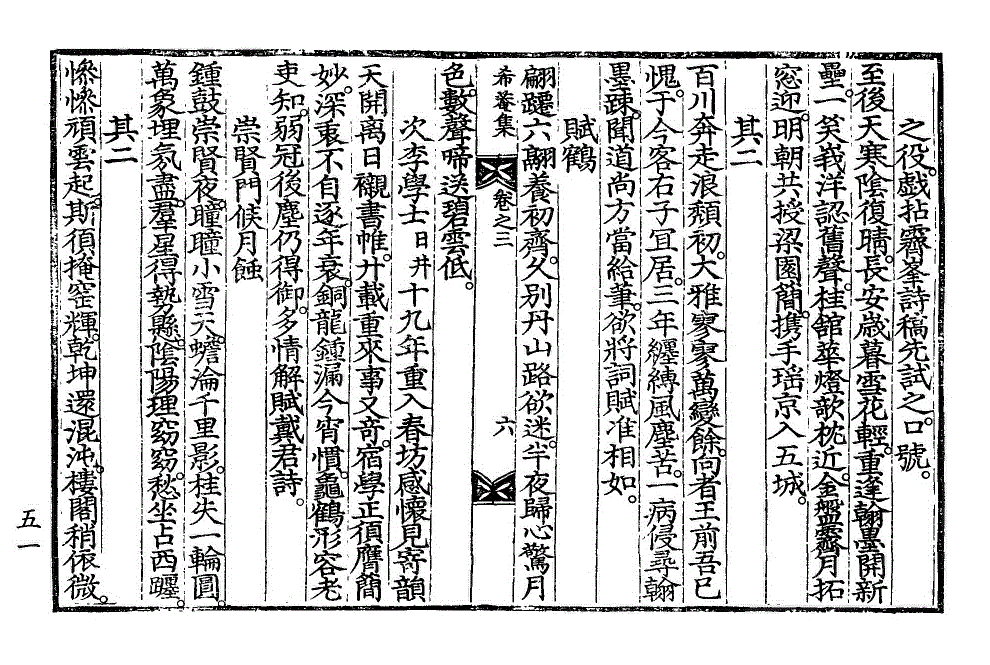 之役。戲拈霽峯詩稿先試之。口號。
至後天寒陰復晴。長安歲暮雪花輕。重逢翰墨開新
壘。一笑峩洋認舊聲。桂館華燈歌枕近。金盤霽月拓
窓迎。明朝共授梁園簡。携手瑶京入五城。
其二
百川奔走浪頹初。大雅寥寥萬變餘。向者王前吾已
愧。于今客右子宜居。三年纏縛風塵苦。一病侵尋翰
墨踈。聞道尚方當給筆。欲將詞賦准相如。
賦鶴
翩躚六翮養初齊。久別丹山路欲迷。半夜歸心驚月
希菴集 卷之三 六
色。數聲啼送碧雲低。
次李學士日井十九年重入春坊感懷見寄韻
天開离日襯書帷。廾載重來事又奇。宿學正須膺簡
妙。深衷不自逐年衰。銅龍鍾漏今宵慣。龜鶴形容老
吏知。弱冠後塵仍得御。多情解賦戴君詩。
崇賢門候月蝕
鍾鼓崇賢夜。曈曈小雪天。蟾淪千里影。桂失一輪圓。
萬象埋氛盡。羣星得勢縣。陰陽理窈窈。愁坐占西躔。
其二
慘慘頑雲起。斯須掩窑輝。乾坤還混沌。樓閣稍依微。
五一